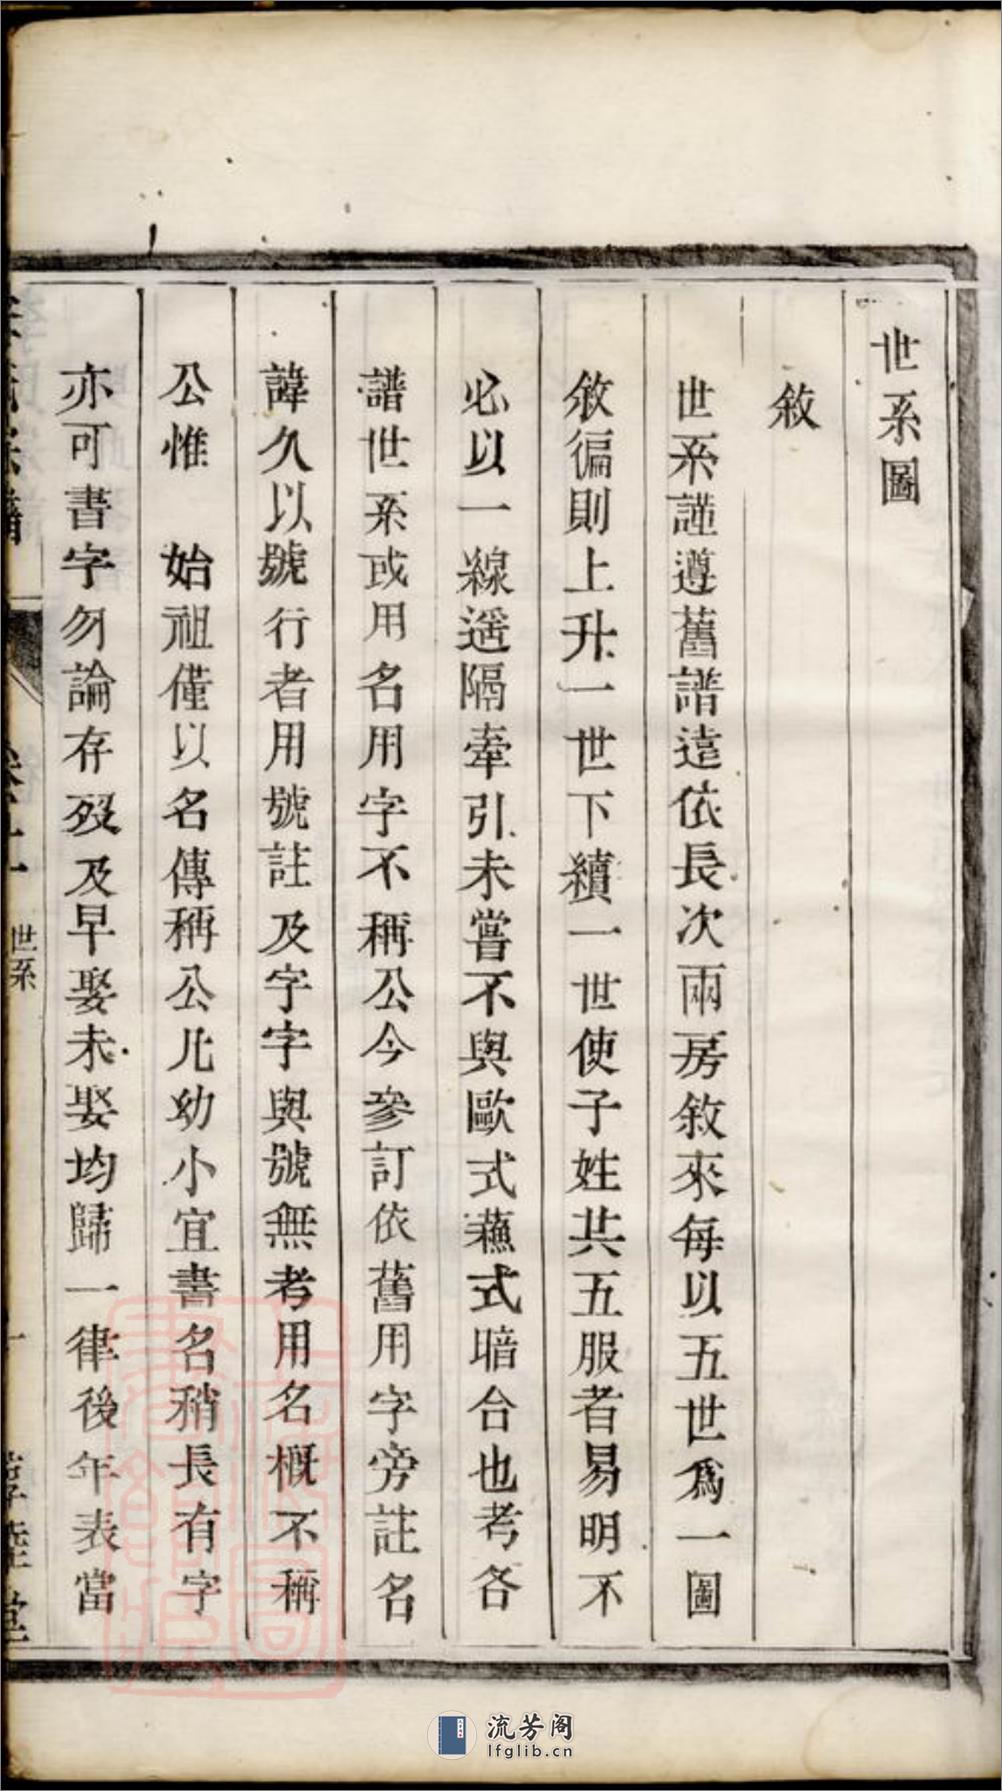 世系圖
敘
世系謹遵舊譜遠依長次兩房敘來每以五世爲一圖
敘徧則上升一世下續一世使子姓共五服者易明不
必以一線遥隔牽引未嘗不與歐式蘇式暗合也考各
譜世系或用名用字不稱公今參訂依舊用字旁註名
諱久以號行者用號註及字字與號無考用名概不稱
公惟　始祖僅以名傳稱公凡幼小宜書名稍長有字
亦可書字勿論存歿及早娶未娶均歸一律後年表當
世系
流芳阁
lfglib.cn